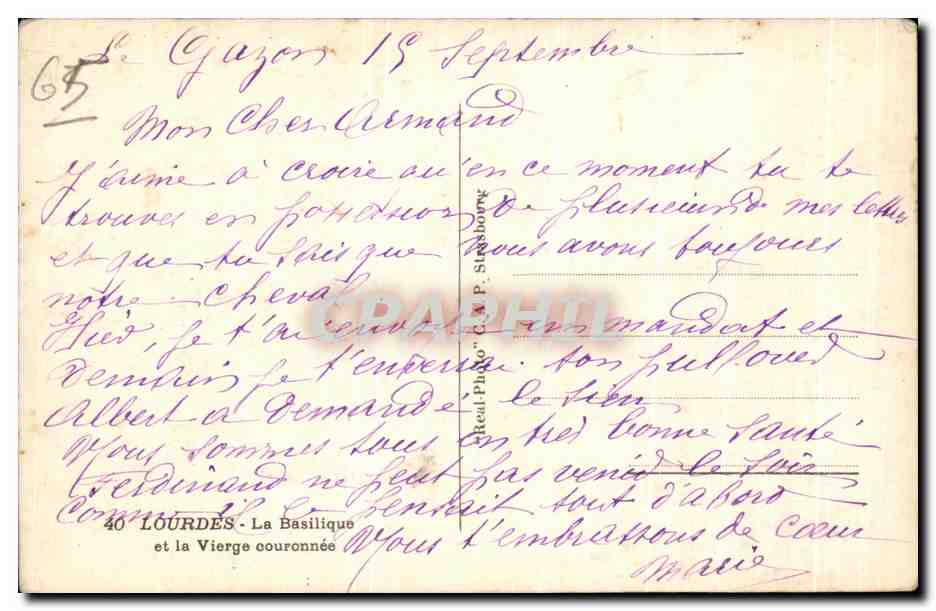 65
Le Gazon 15 Septembre
Mon Cher Armand
J'aime à croire qu'en ce moment tu te
trouves en possession de plusieurs de mes lettres
et que tu sais que nous avons toujours
notre cheval
Hier, je t'ai envoyé un mandat et
demain je t'enverrai ton pullover
Albert a demandé le sien
Nous sommes tous en très bonne santé
Ferdinand ne peut pas venir le soir
Comme il le pensait tout d'abord
Nous t'embrassons de cœur
Marie
40 LOURDES - La Basilique
et la Vierge couronnée
"Real-Photo" C. A. P. Strasbourg
CRAPHIL